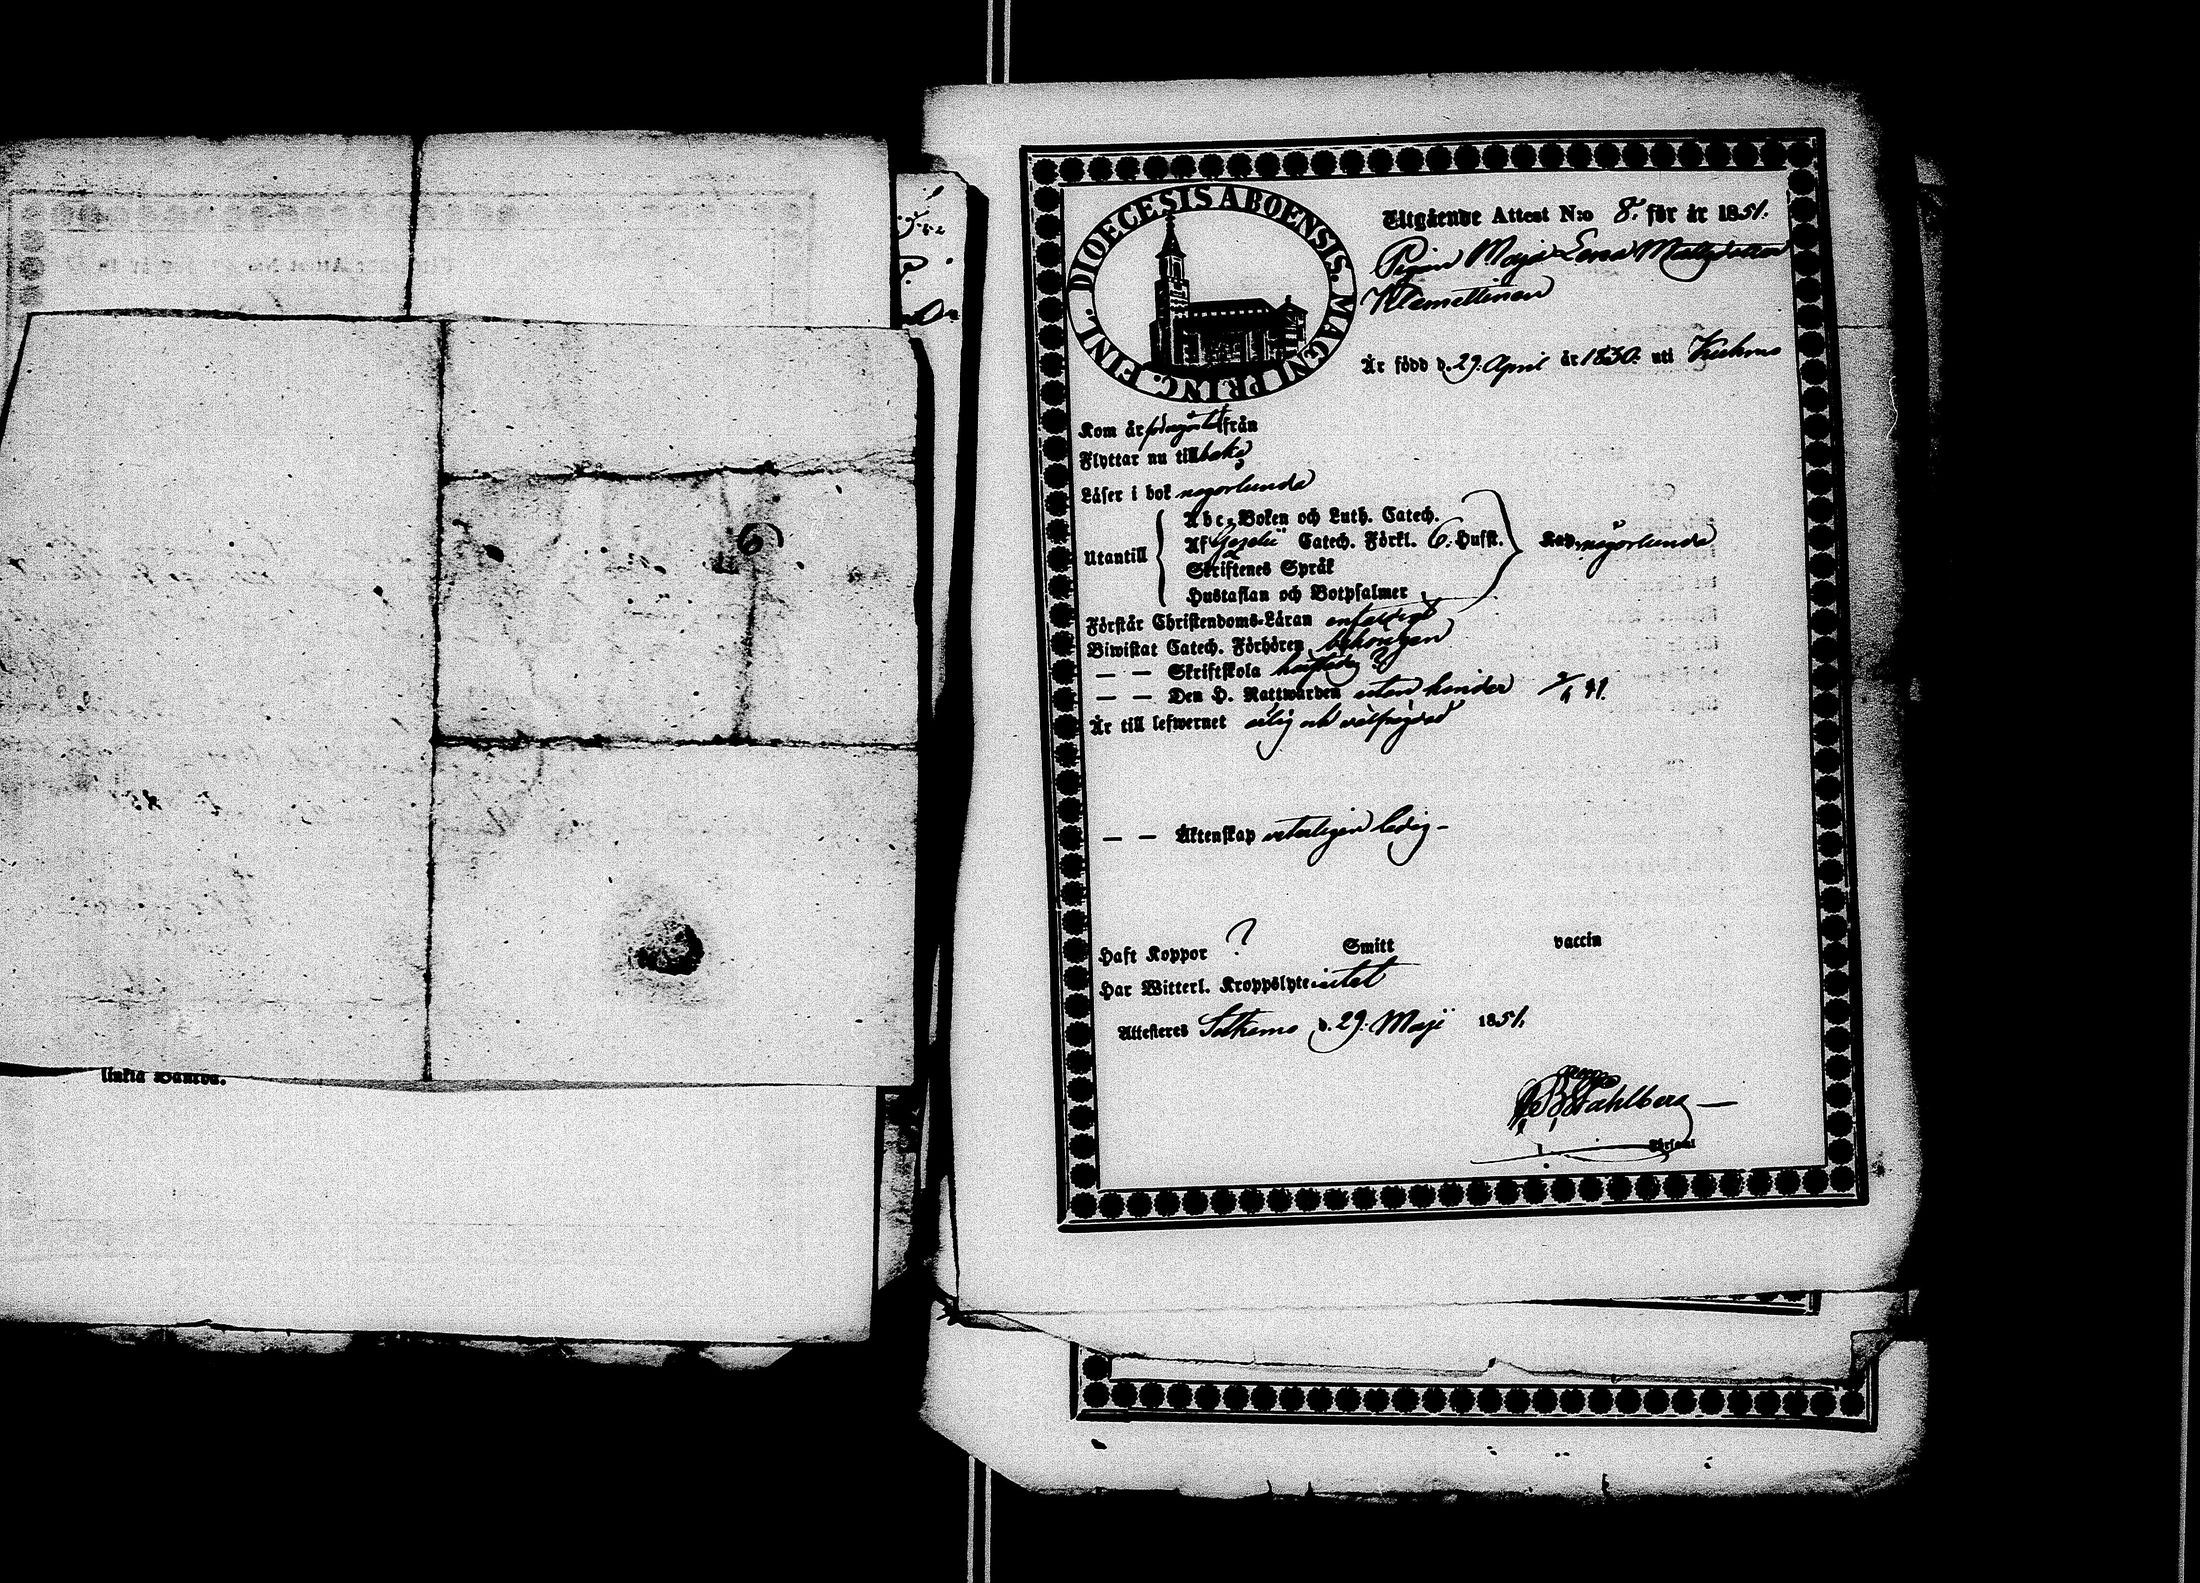 DIOECESIS ABOENSIS. MAGNI PRINC. FINL.
Utgående Attest N:o 8. för år 1851.
Pigan Maja Lena Mattsdotter
Klemettinen
Är född d. 29. April år 1830. uti Kuhmo
Kom år från
Flyttar nu tillbaka
Läser i bok någorlunda
Utantill
Abc-Boken och Luth. Catech.
Af Gezelii Catech. Förkl. 6. Hufst.
Skriftenes Språk
Hustaflan och Botpsalmer
någorlunda
Förstår Christendoms-Läran enfaldigt
Biwistat Catech. Förhören behörigen
— — Skriftskola
— — Den H. Nattwarden utan hinder
Är till lefwernet ärlig och välfrejdad
— — Äktenskap veterligen ledig –
Haft Koppor ? Smitt vaccin
Har Witterl. Kroppslyte intet
Attesteres Sotkamo d. 29. Maji 1851.
Stahlberg —
6
linkta